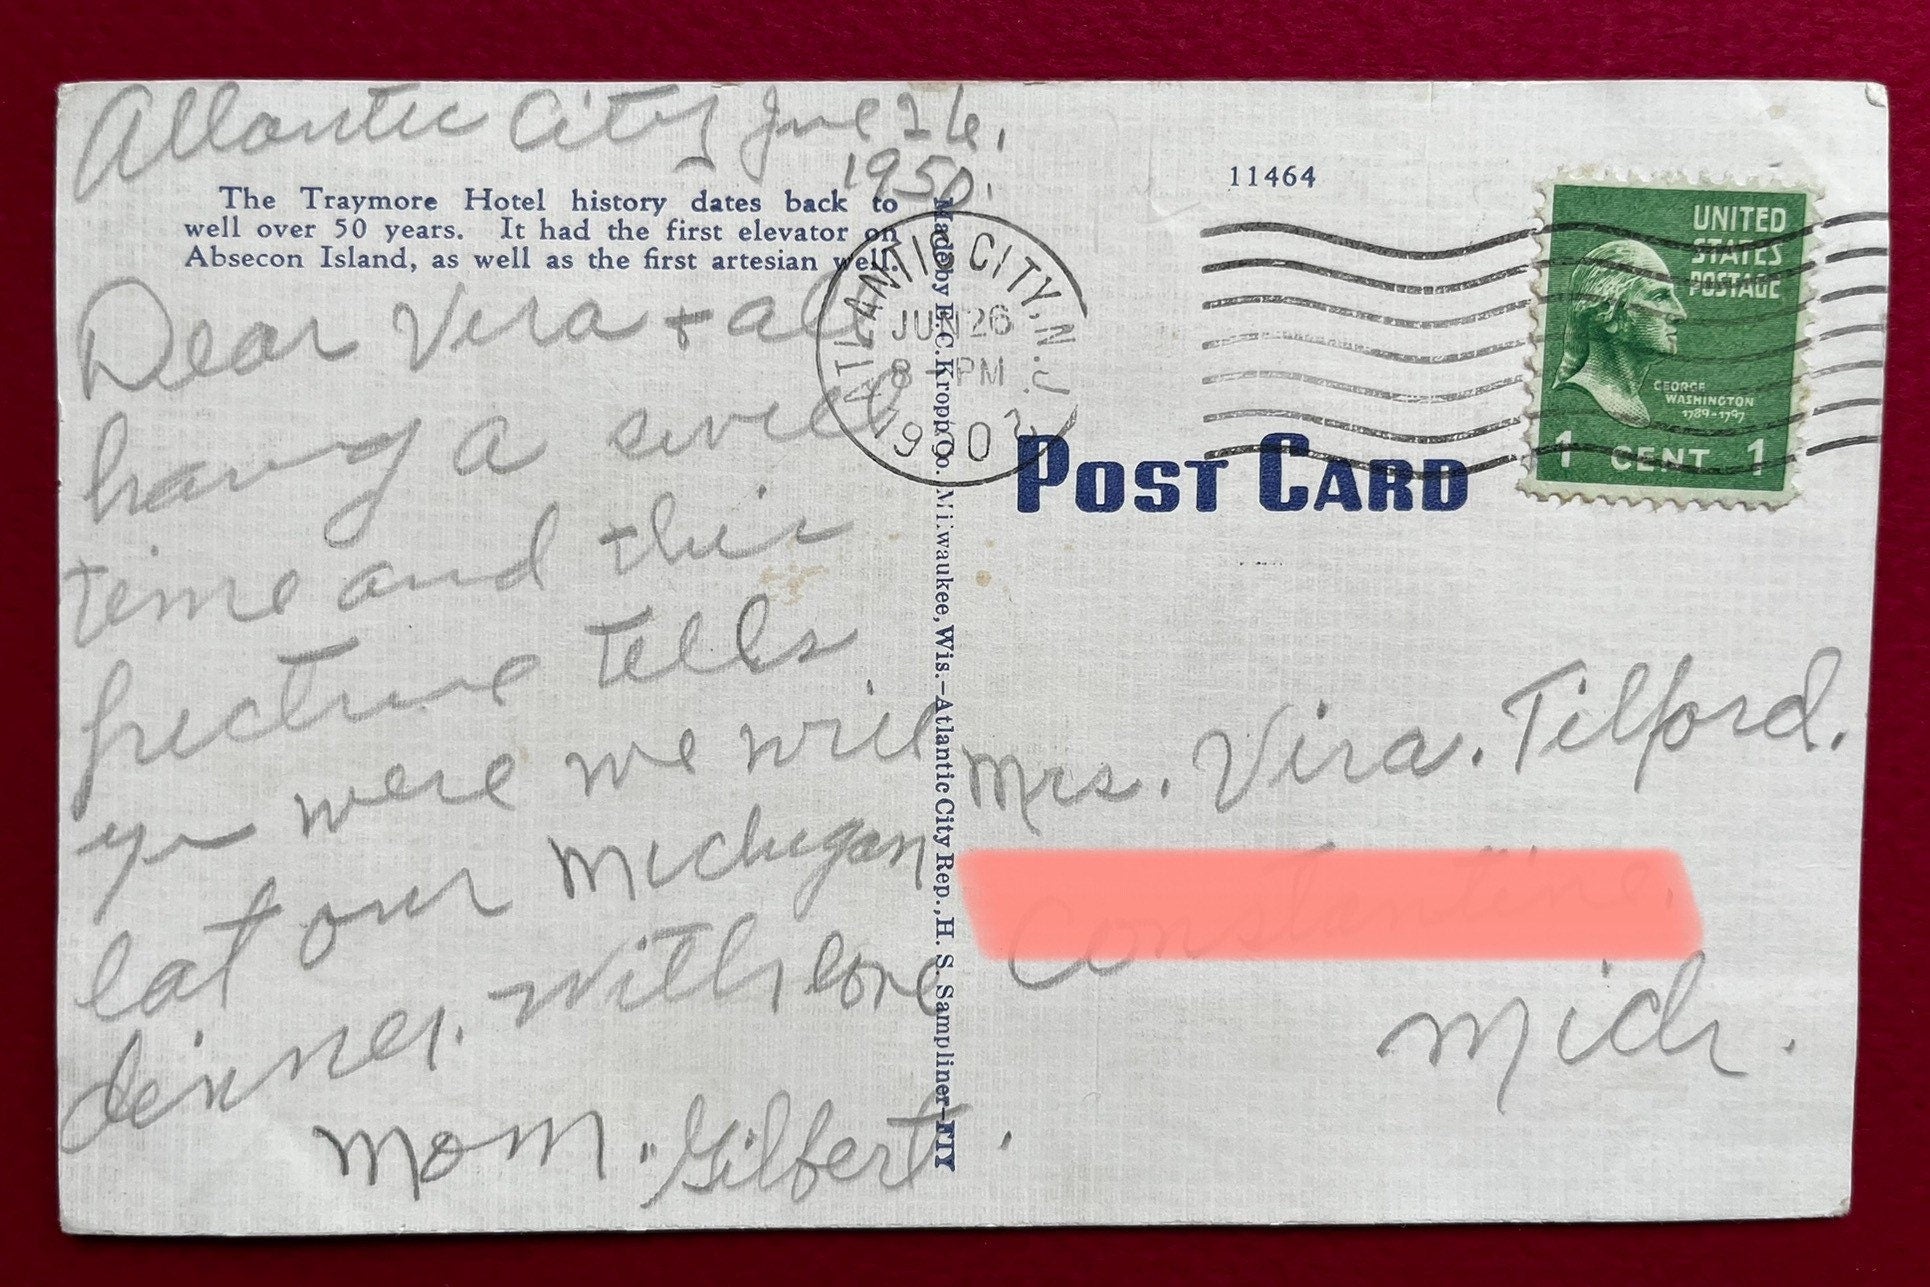 Atlantic City June 26,
1950.
The Traymore Hotel history dates back to
well over 50 years. It had the first elevator on
Absecon Island, as well as the first artesian well.
Dear Vera + all
having a swell
time and this
picture tells
yu were we will
eat our Michigan
dinner. With love
Mom. Gilbert.
Made by E. C. Kropp Co. Milwaukee, Wis.—Atlantic City Rep., H. S. Sampliner—NY
11464
ATLANTIC CITY, N.J.
JUN 26
8 - PM
19 0
2
UNITED
STATES
POSTAGE
GEORGE
WASHINGTON
1789-1797
1 CENT 1
POST CARD
Mrs. Vira. Tilford.
Mich.